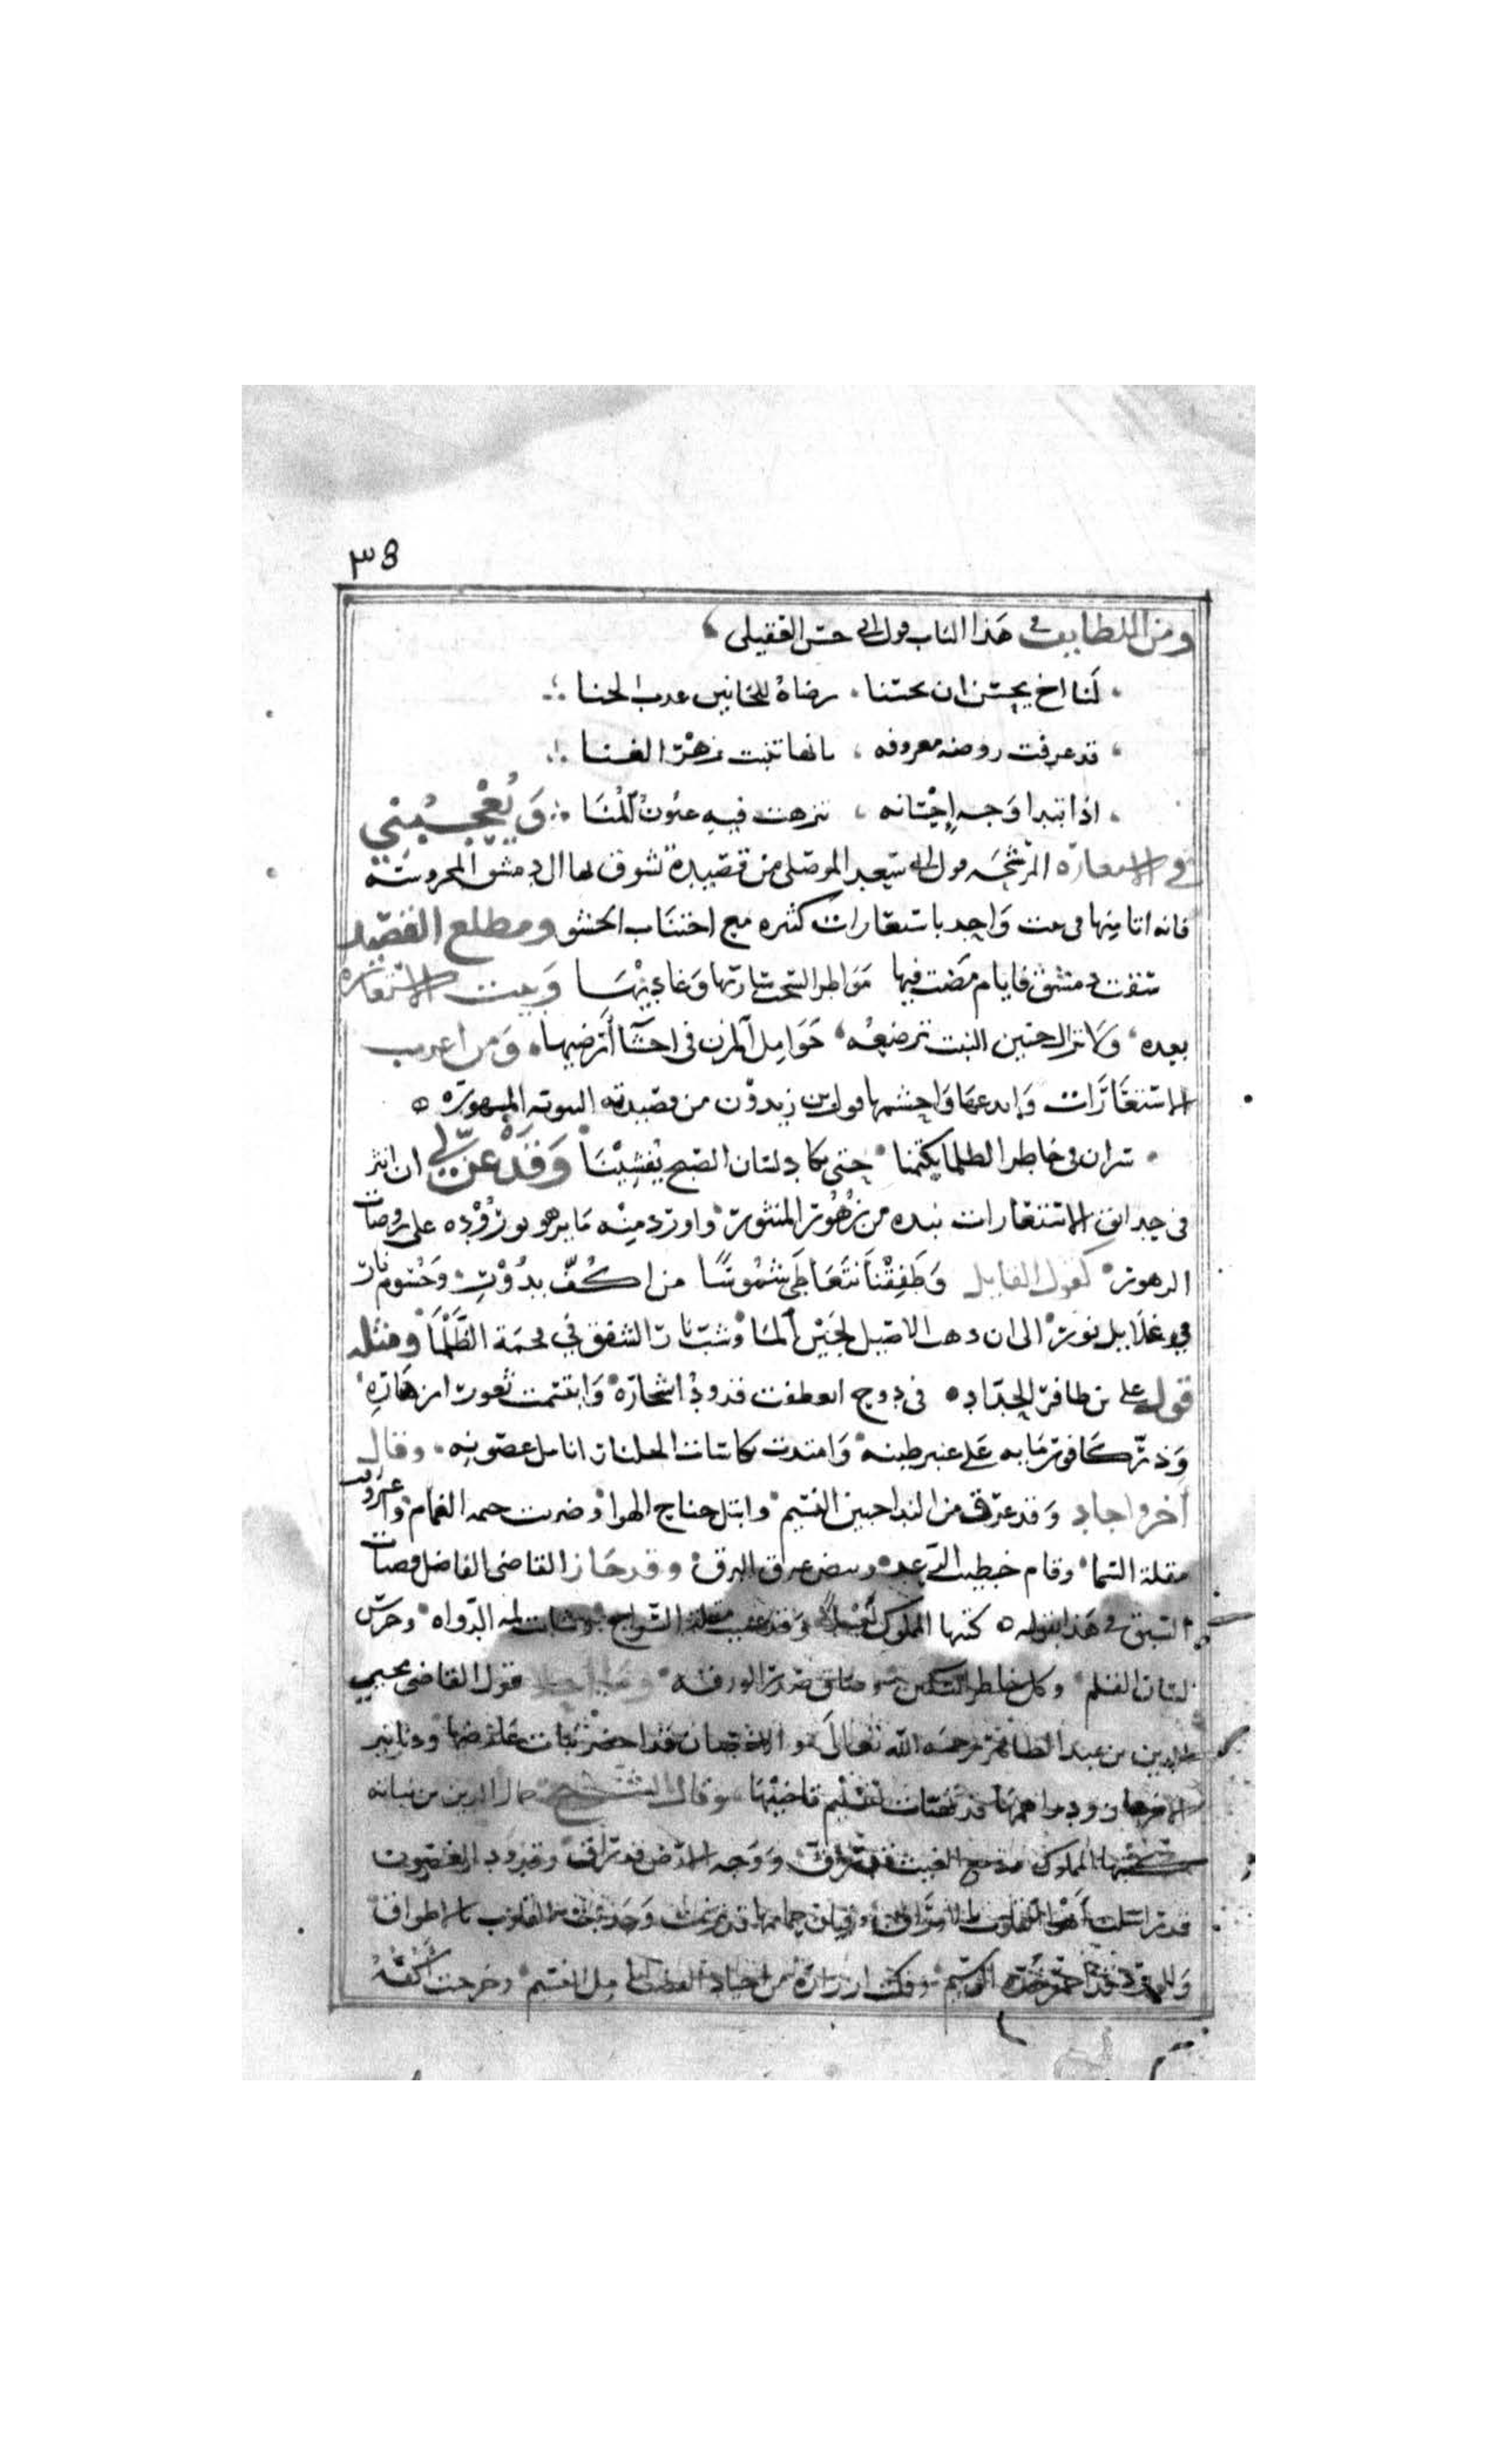 ٣٨
ومن اللطايف في هذا الباب قول ابي حسن العقيلي
لنا اخ يحسن ان يحسنا . رضاه للجانين عذب الجنا
قد عرفت روضة معروفه ، بانها تنبت زهر الغنا
اذا تبدا وجه احسانه ، تنزهت فيه عيون المنا وَيُعْجِبُني
في الاستعارة المرشحه قول ابي سعيد الموصلي من قصيدة تشوق بها الى دمشق المحروسة
فانه اتا منها في بيت واحد باستعارات كثيره مع اجتناب الحشو ومطلع القصيد
سقت دمشق فايام مضت فيها مواطر السحب ساريها وغاديها وبيت الاستعاره
بعده ولا يزال جنين النبت ترضعه حوامل المزن في احشا أرضيها ومن اغرب
الاستعارات وابدعها واحشمها قول بن زيدون من قصيدته النونيه المشهوره
سران في خاطر الظلما يكتمنا حتى يكاد لسان الصبح يفشينا وَقَدْ عنّ لي ان انثر
في حدايق الاستعارات نبده من زهور المنثور واورد منه ما يزهو بوروده على روضات
الزهور كقول القايل وَطَفِقْنَا نَتَعَاطَى شُمُوسًا من اكُفّ بدُوْرِ وجسوم نار
في غلايل نور الى ان ذهب الاصيل لجين المَا وشبت نار الشفق في فحمة الظلْمَا ومثله
قول علي بن ظافر الحداد في دوح انعطفت قدود اشجاره وابتسمت ثغور ازهاره
وَذرّ كافور مَايه على عنبر طينه وامتدت بكاسات الجلنار انامل غصونه وقال
آخر واجاد وقد عرق من الندا جبين النسيم وابتل جناح الهوا وضربت خيمه الغمام واغرورقت
مقلة السما وقام خطيب الرعد ونبض عرق البرق وقد حاز القاضي الفاضل قصبات
السبق في هذا بقوله كتبها المملوك ليلا وقد عميت مقلة السراج وشابت لمه الدواه وخرس
لسان القلم وكل خاطر السكين وضاق صدر الورقه قول القاضي محيي
الدين بن عبد الظاهر رحمه الله تعالى والاغصان قد اخضر نبات عارضها ودنانير
الازهار ودراهمها قد تهيات لتسليم قابضها وقال الشيخ جمال الدين بن نباته
كتبها المملوك ودمع الغيث قد رقا ووجه الارض قد راق وقدود الغصون
قد راسلت اهوا القلوب بالاوراق وقيان حمايمها قد ترنمت وجذبت القلوب بالاطواق
والورد قد احمر خده الوسيم وفكت ازراره من اجياد القضب انامل النسيم وخرجت اكفه